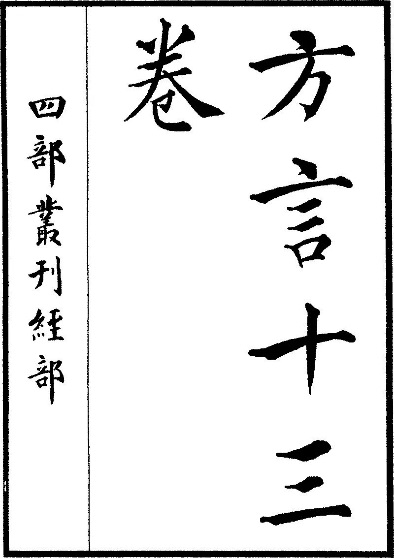 方言十三
卷
四部叢刊經部